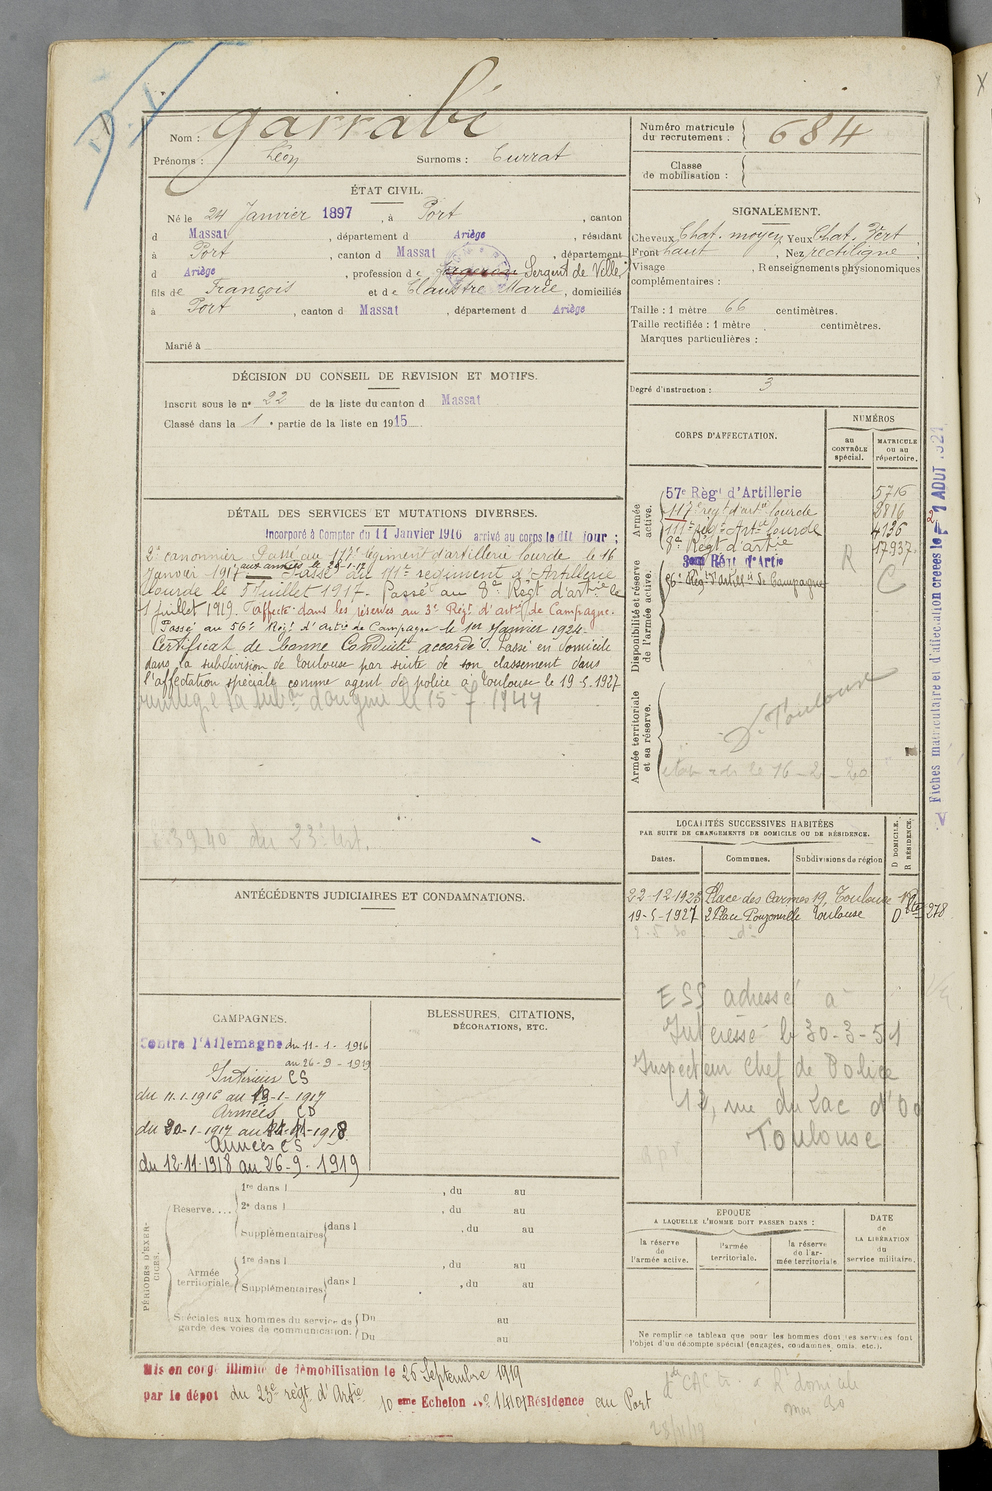 Nom : Garrabé
Prénoms : Léon Surnoms : Currat
Numéro matricule du recrutement : 684
Classe de mobilisation :
ÉTAT CIVIL.
Né le 24 Janvier 1897, à Port, canton
d Massat, département d Ariège, résidant
à Port, canton d Massat, département
d Ariège, profession de Sergent de Ville
fils de François et de Claustre Marie, domiciliés
à Port, canton d Massat, département d Ariège
Marié à
SIGNALEMENT.
Cheveux Chat. moyen Yeux Chat. Vert
Front haut, Nez rectiligne
Visage, Renseignements physionomiques
complémentaires :
Taille : 1 mètre 66 centimètres.
Taille rectifiée : 1 mètre centimètres.
Marques particulières :
Degré d'instruction : 3
DÉCISION DU CONSEIL DE REVISION ET MOTIFS.
Inscrit sous le n° 22 de la liste du canton d Massat
Classé dans la 1e partie de la liste en 1915
CORPS D'AFFECTATION.
NUMÉROS
au CONTRÔLE spécial.
MATRICULE ou au répertoire.
Armée active.
57e Régt d'Artillerie 5716
117e régt d'artie lourde 2816
111e régt Artie lourde 4136
8e Régt d'artie 17937
Disponibilité et réserve de l'armée active.
3eme Régt d'Artie R C
56e Régt d'Artie de Campagne
Armée territoriale et sa réserve.
Toulouse
le 16-2-20
DÉTAIL DES SERVICES ET MUTATIONS DIVERSES.
Incorporé à Compter du 11 Janvier 1916 arrivé au corps le dit jour ;
2e canonnier. Passé au 117e régiment d'artillerie lourde le 16
Janvier 1917 aux armées le 20-1-17 Passé au 111e régiment d'Artillerie
lourde le 5 Juillet 1917. Passé au 8e Régt d'artie le
1 Juillet 1919. Affecté dans les réserves au 3e Régt d'artie de Campagne.
Passé au 56e Régt d'Artie de Campagne le 1er Janvier 1924.
Certificat de bonne Conduite accordé. Passé en domicile
dans la subdivision de Toulouse par suite de son classement dans
l'affectation spéciale comme agent de police à Toulouse le 19-5-1927
la subdon d'origine le 15-7-1947
3940 du 23e art.
ANTÉCÉDENTS JUDICIAIRES ET CONDAMNATIONS.
LOCALITÉS SUCCESSIVES HABITÉES
PAR SUITE DE CHANGEMENTS DE DOMICILE OU DE RÉSIDENCE.
D DOMICILE.
R RÉSIDENCE.
Dates. Communes. Subdivisions de région
22-12-1923 Place des Carmes 19, Toulouse
19-5-1927 2 Place Pouzonville Toulouse D 278
ESS adressé à
Intéressé le 30-3-51
Inspecteur Chef de Police
12, rue du Lac d'Oo
Toulouse
CAMPAGNES.
Contre l'Allemagne du 11-1-1916
au 26-9-1919
Intérieur CS
du 11.1.1916 au 19-1-1917
Armées CD
du 20-1-1917 au 11-11-1918
Armées CS
du 12.11.1918 au 26-9-1919
BLESSURES, CITATIONS,
DÉCORATIONS, ETC.
PÉRIODES D'EXERCICES.
Réserve....
1re dans l , du au
2e dans l , du au
Supplémentaires dans l , du au
Armée territoriale
1re dans l , du au
Supplémentaires dans l , du au
Spéciales aux hommes du service de garde des voies de communication.
Du au
Du au
EPOQUE
A LAQUELLE L'HOMME DOIT PASSER DANS :
DATE de LA LIBÉRATION du service militaire.
la réserve de l'armée active.
l'armée territoriale.
la réserve de l'armée territoriale
Ne remplir ce tableau que pour les hommes dont les services font
l'objet d'un décompte spécial (engagés, condamnés, omis, etc.).
Mis en congé illimité de démobilisation le 26 Septembre 1919
par le dépôt du 23e régt d'Artie 10eme Echelon Résidence au Port
Fiches matriculaire et d'affectation créées le 1 AOUT 1921